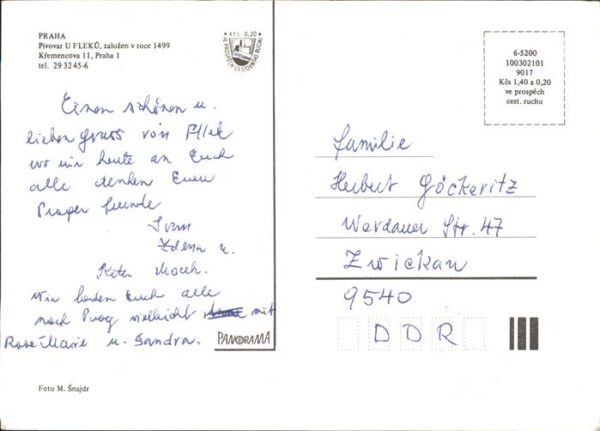 PRAHA
Pivovar U FLEKŮ, založen v roce 1499
Křemencova 11, Praha 1
tel. 29 3245-6
KČS 0,20
VE PROSPĚCH CESTOVNÍHO RUCHU
6-5200
100302101
9017
Kčs 1,40 a 0,20
ve prospěch
cest. ruchu
Einen schönen u.
lieben Gruss von Flek
wo wir heute an Euch
alle denken Euere
Prager Freunde
Ivan
Zdena u.
Wir laden Euch alle
nach Prag vielleicht mit
Rose Marie u. Sandra.
PANORAMA
Foto M. Šnajdr
Familie
Herbert Göckeritz
Werdauer Str. 47
Zwickau
9540
DDR